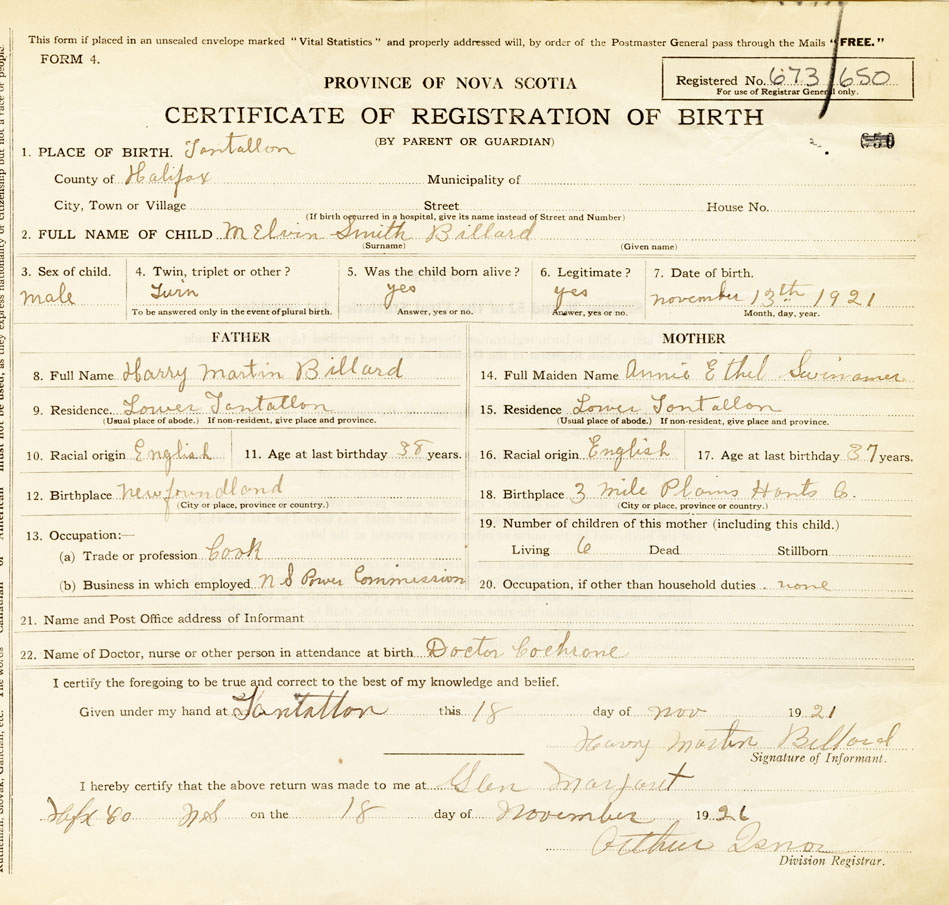 This form if placed in an unsealed envelope marked "Vital Statistics" and properly addressed will, by order of the Postmaster General pass through the Mails "FREE."
FORM 4.
PROVINCE OF NOVA SCOTIA
Registered No. 673 650
For use of Registrar General only.
CERTIFICATE OF REGISTRATION OF BIRTH
(BY PARENT OR GUARDIAN)
650
1. PLACE OF BIRTH. Tantallon
County of Halifax Municipality of
City, Town or Village Street House No.
(If birth occurred in a hospital, give its name instead of Street and Number)
2. FULL NAME OF CHILD MElvin Smith Billard
(Surname) (Given name)
3. Sex of child. 4. Twin, triplet or other? 5. Was the child born alive? 6. Legitimate? 7. Date of birth.
male Twin yes yes november 13th 1921
To be answered only in the event of plural birth. Answer, yes or no. Answer, yes or no. Month, day, year.
FATHER MOTHER
8. Full Name Harry Martin Billard 14. Full Maiden Name Annie Ethel Swinamer
9. Residence. Lower Tantallon 15. Residence Lower Tantallon
(Usual place of abode.) If non-resident, give place and province. (Usual place of abode.) If non-resident, give place and province.
10. Racial origin English 11. Age at last birthday 38 years. 16. Racial origin English 17. Age at last birthday 37 years.
12. Birthplace newfoundland 18. Birthplace 3 mile Plains Hants Co.
(City or place, province or country.) (City or place, province or country.)
13. Occupation:— 19. Number of children of this mother (including this child.)
(a) Trade or profession Cook Living 6 Dead Stillborn
(b) Business in which employed N S Power Commission 20. Occupation, if other than household duties none
21. Name and Post Office address of Informant
22. Name of Doctor, nurse or other person in attendance at birth Doctor Cochrone
I certify the foregoing to be true and correct to the best of my knowledge and belief.
Given under my hand at Tantallon this 18 day of nov 1921
Harry Martin Billard
Signature of Informant.
I hereby certify that the above return was made to me at Glen Margaret
Hfx Co N S on the 18 day of november 1921
Arthur Isnor
Division Registrar.